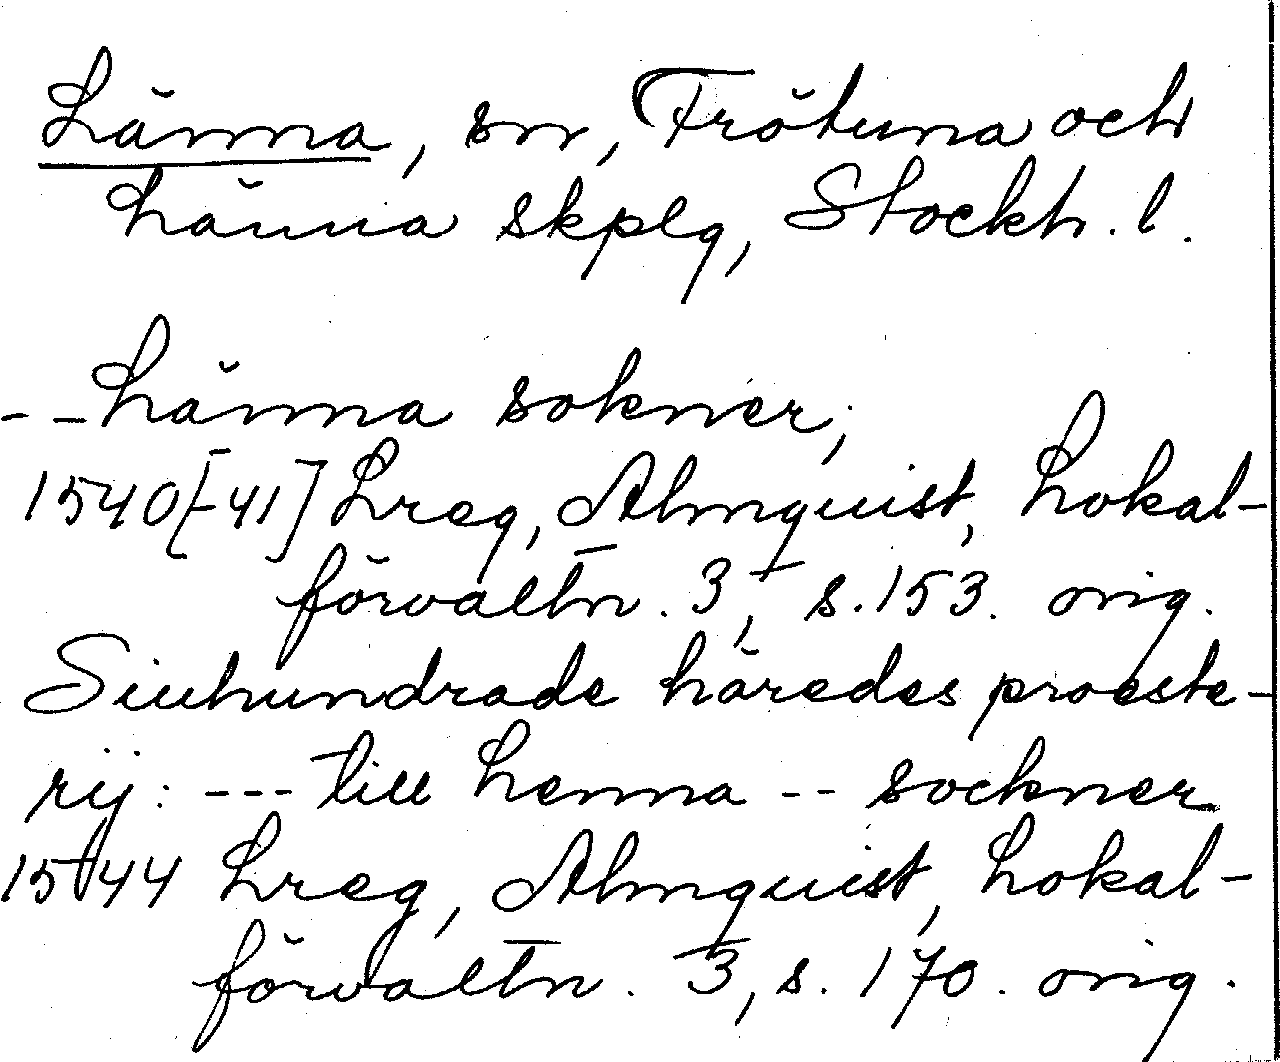 Länna, sn, Frötuna och
Länna skplg, Stockh. l.
- - Länna sokner;
1540[-41] Lreg, Almquist, Lokal-
förvaltn. 3, s. 153. orig.
Siuhundrade häredes proeste-
rij: - - - till Lenna - - sockner
1544 Lreg, Almquist, Lokal-
förvaltn. 3, s. 170. orig.